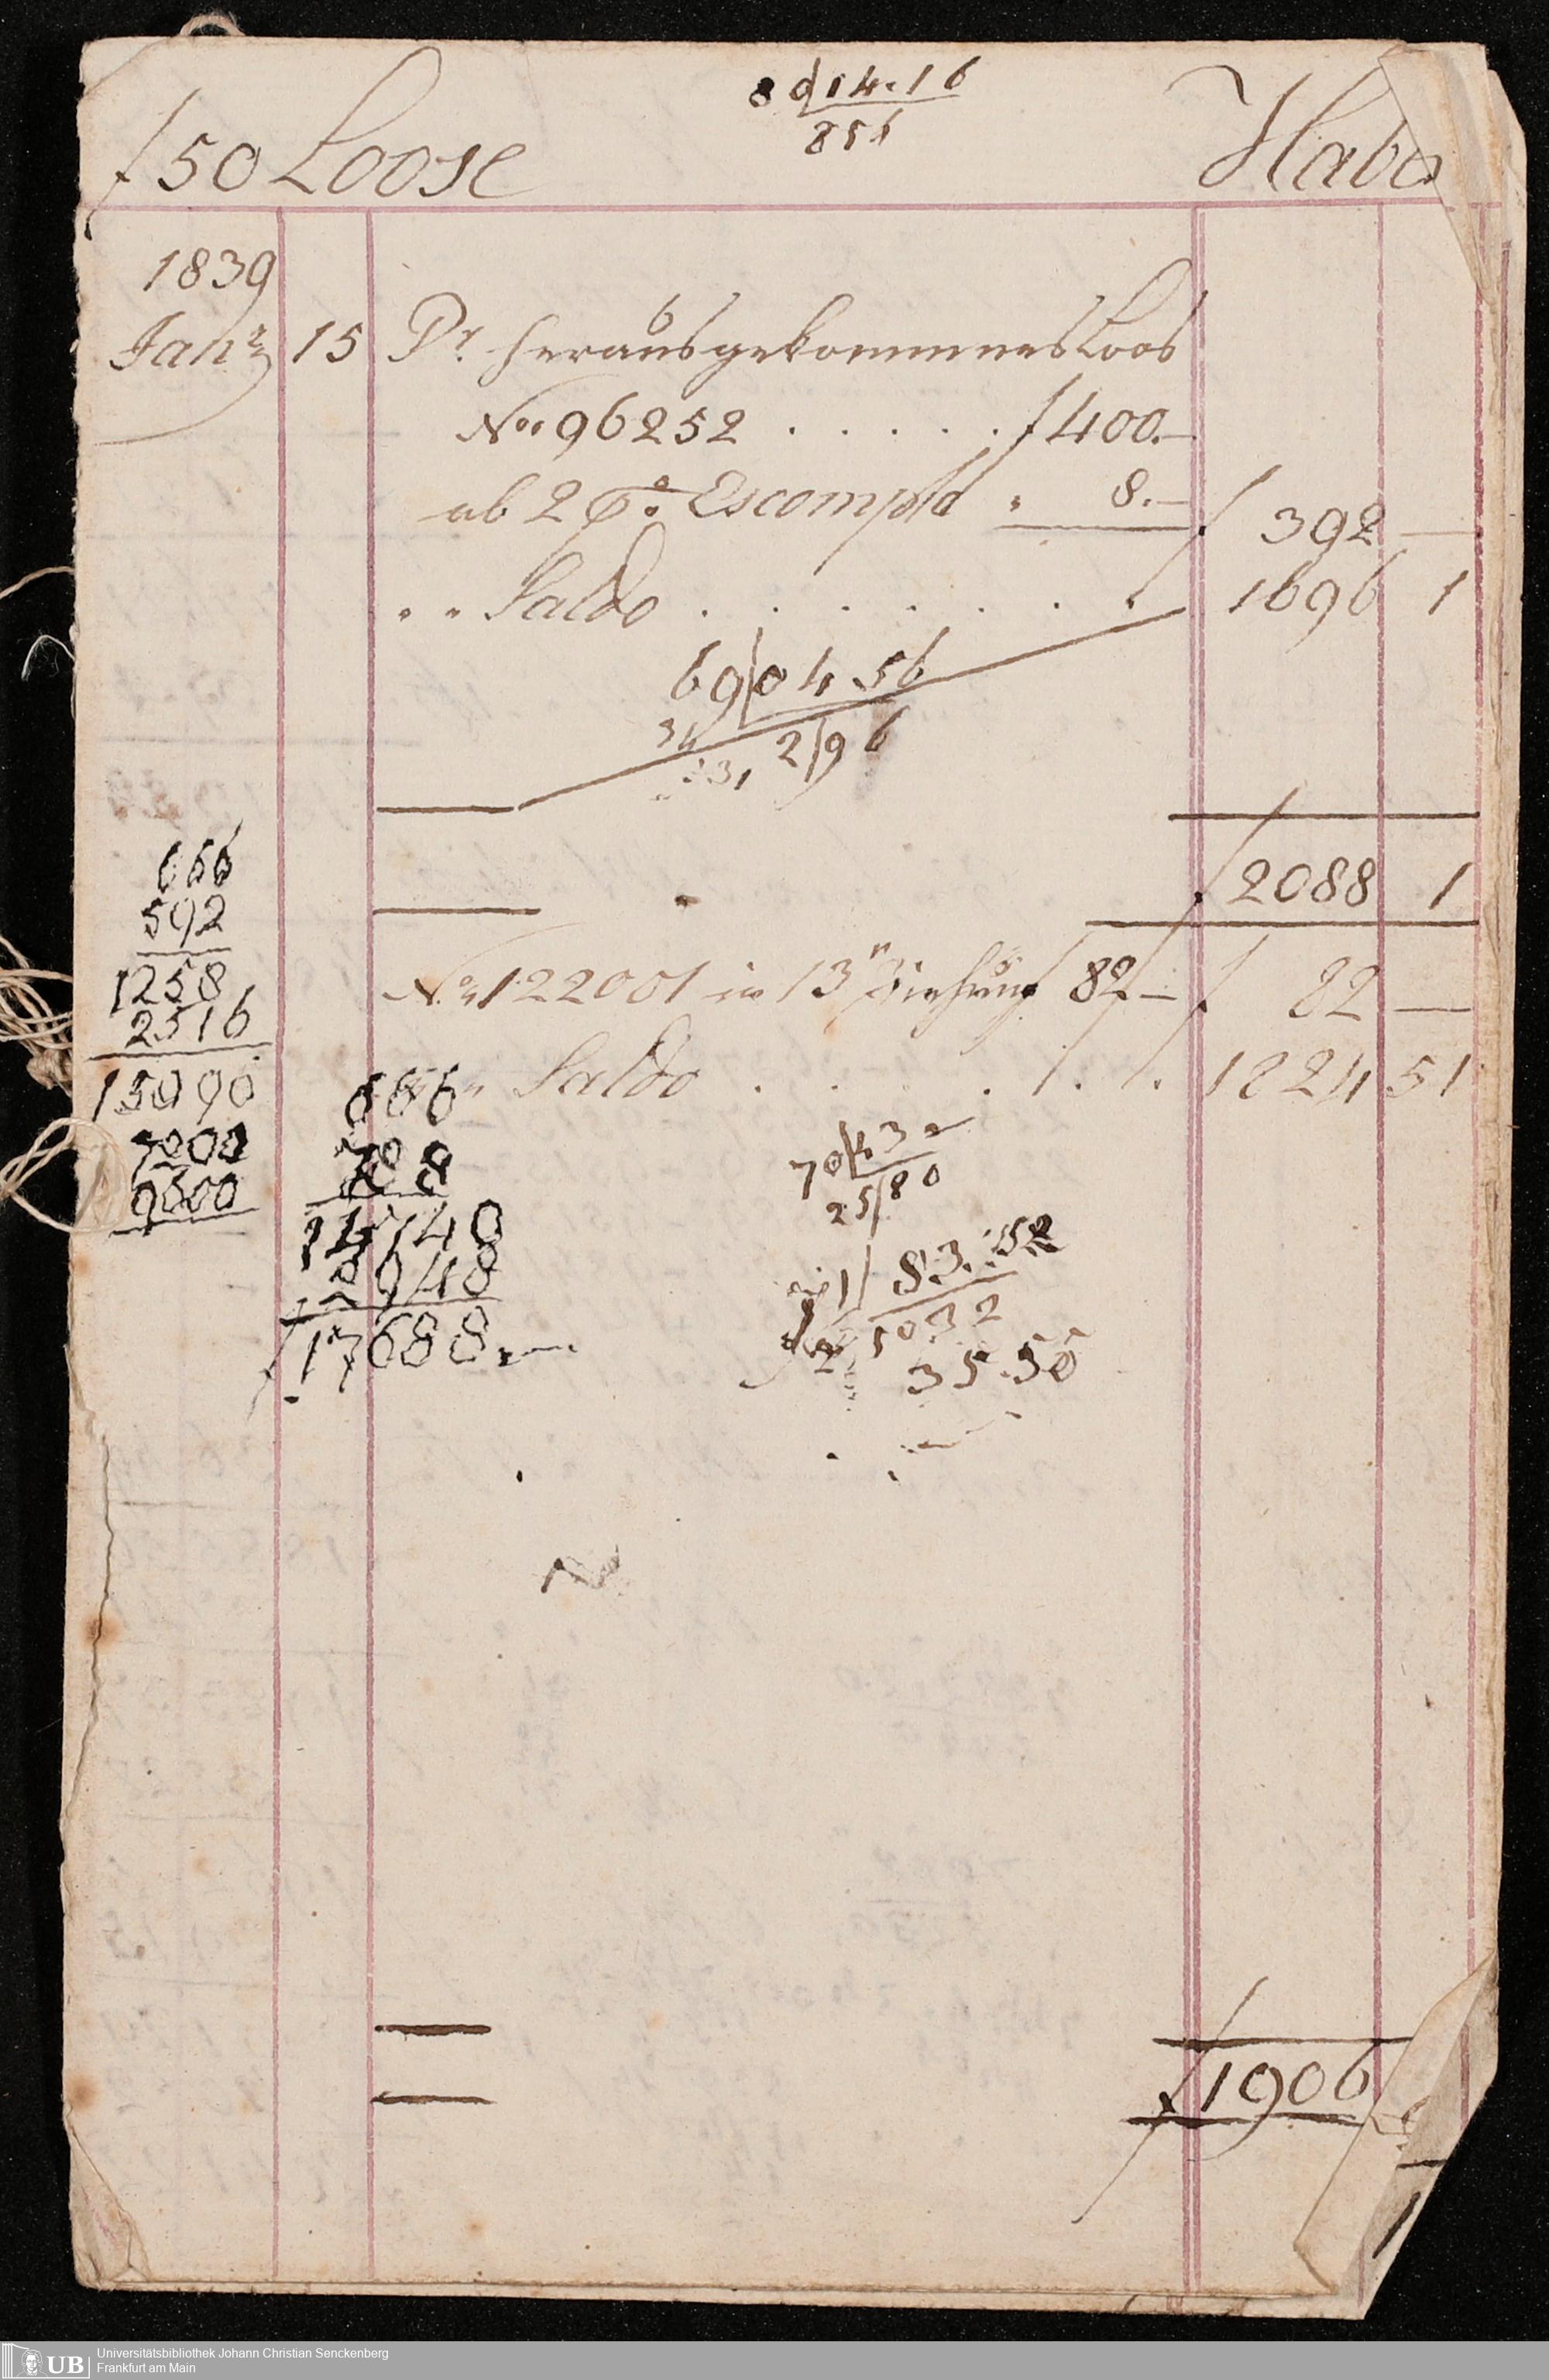 8 9/14.16
856
f 50 Loose
Habe
1839
Janr 15 Pr. herausgekommnes Loos
No. 96252 . . . . . f 400.—
ab 2 p° Escompto " 8.— f 392 —
" " Saldo . . . . . . . 1696 1
69/04 56
34 2/96
31
f 2088 1
No. 122001 in 13n Ziehung f 82 — f 82 —
" Saldo . . . . . . 1824 51
666
592
1258
2516
15090
7200
9300
666
708
14740
2948
f 17688.—
70/43
25/80
83.52
5032
35.50
f 1906
UB Universitätsbibliothek Johann Christian Senckenberg
Frankfurt am Main